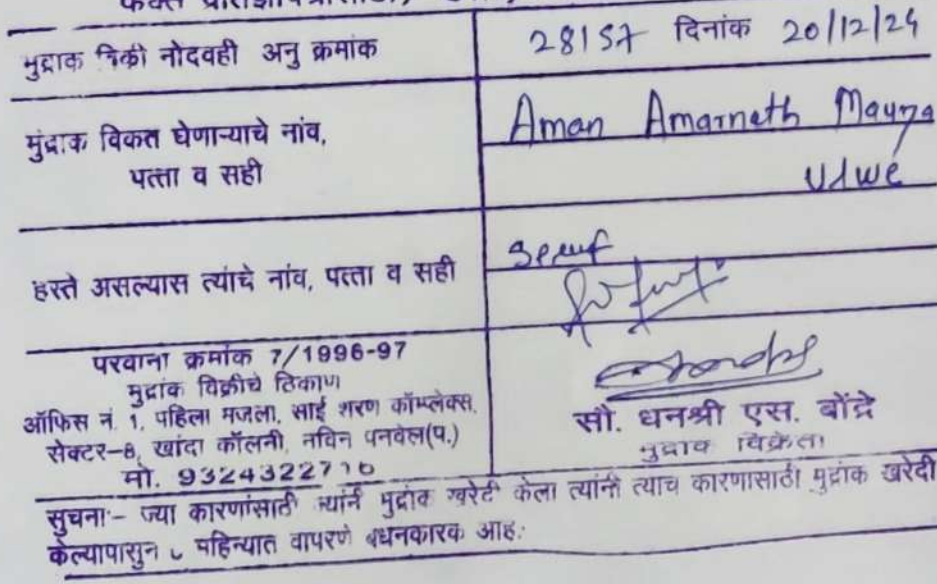 फक्त
मुद्राक विक्री नोदवही अनु क्रमांक
28157 दिनांक 20/12/24
मुंद्राक विकत घेणाऱ्याचे नांव,
पत्ता व सही
Aman Amarnath Maurya
Ulwe
हस्ते असल्यास त्यांचे नांव, पत्ता व सही
Self
परवाना क्रमांक 7/1996-97
मुद्रांक विक्रीचे ठिकाण
ऑफिस नं. 1, पहिला मजला, साई शरण कॉम्प्लेक्स,
सेक्टर-8, खांदा कॉलनी, नविन पनवेल(प.)
मो. 9324322716
सौ. धनश्री एस. बोंद्रे
मुद्रांक विक्रेता
सुचना:- ज्या कारणांसाठी ज्यांनी मुद्रांक खरेदी केला त्यांनी त्याच कारणासाठी मुद्रांक खरेदी
केल्यापासुन ६ महिन्यात वापरणे बंधनकारक आहे.